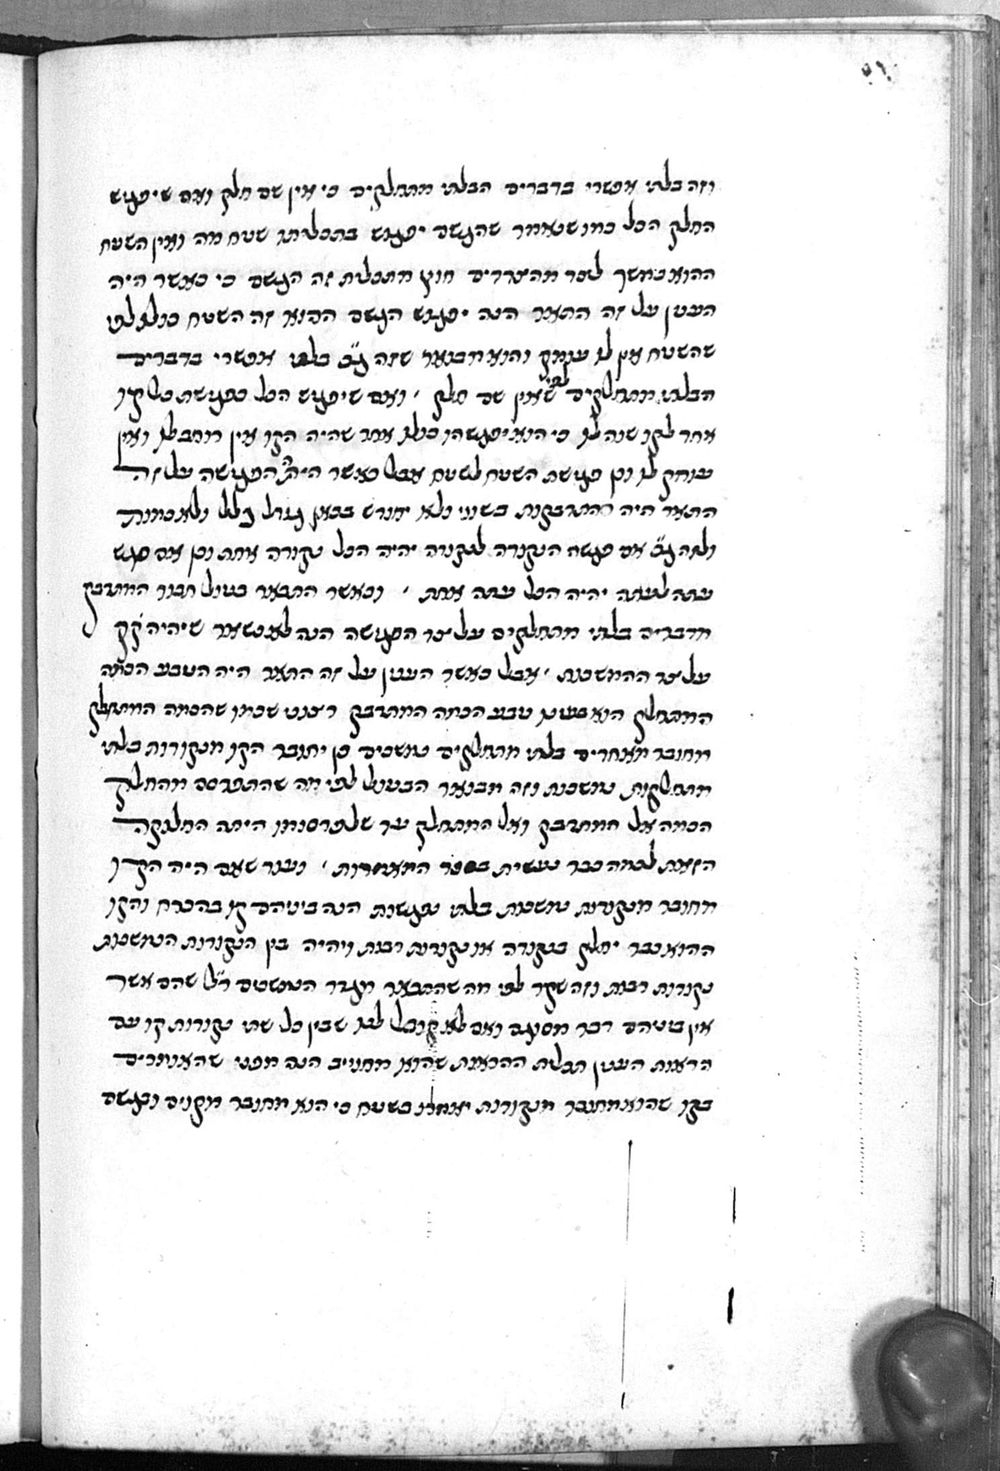 וזה בלתי אפשרי בדברים הבלתי מתחלקים כי אין שם חלק ואם שיפגוש
החלק הכל כמו שנאמר שהגשם יפגוש בתכליתו שטח מה ואין השטח
ההוא נמשך לצד מהצדדים חוץ מתכלית זה הגשם כי כאשר היה
הענין על זה התאר הנה יפגוש הגשם ההוא זה השטח כולו לפי
שהשטח אין לו עומק והוא מבואר שזה ג"כ בלתי אפשרי בדברים
הבלתי מתחלקים לפי שאין שם חלק ואם שיפגוש הכל כפגישת כל קו
אחד לקו שוה לו כי הוא יפגשהו כולו אחר שהיה הקו אין רוחב לו ואין
עומק לו וכן פגישת השטח לשטח אבל כאשר היתה הפגישה על זה
התאר היה ההתדבקות בשווי ולא יחודש בכאן גודל כלל ולא כמות
ולזה ג"כ אם פגשה הנקודה לנקודה יהיה הכל נקודה אחת וכן אם פגש
עתה לעתה יהיה הכל עתה אחת וכאשר התבאר בטול חבור המתדבק
מדברים בלתי מתחלקים על צד הפגישה הנה לא נשאר שיהיה זה
על צד ההמשכות אבל כאשר הענין על זה התאר היה הטבע הכמה
המתחלק הוא בעינו טבע הכמה המתדבק רצוני שכמו שהכמה המתחלק
מחובר מאחדים בלתי מתחלקים נמשכים כן יחובר הקו מנקודות בלתי
מתחלקות נמשכות וזה מבואר הבטול לפי מה שהתפרסם מהחלק
הכמה אל המתדבק ואל המתחלק עד שלפרסומו היתה החלוקה
הזאת לכמה כבר נעשית בספר המאמרות ועוד שאם היה הקו
מחובר מנקודות נמשכות בלתי נפגשות הנה ביניהם קו בהכרח והקו
ההוא כבר יחלק בנקודה או נקודות רבות ויהיה בין הנקודות הנמשכות
נקודות רבות וזה שקר לפי מה שהתבאר מגדר הנמשכים ר"ל שהם אשר
אין ביניהם דבר מסוגם ואם לא נקובל לנו שבין כל שתי נקודות קו עם
הראות הענין תכלית ההראות שהוא מחוייב הנה מפני שהאומרים
בקו שהוא מחובר מנקודות יאמרו בשטח כי הוא מחובר מקוים ובגשם